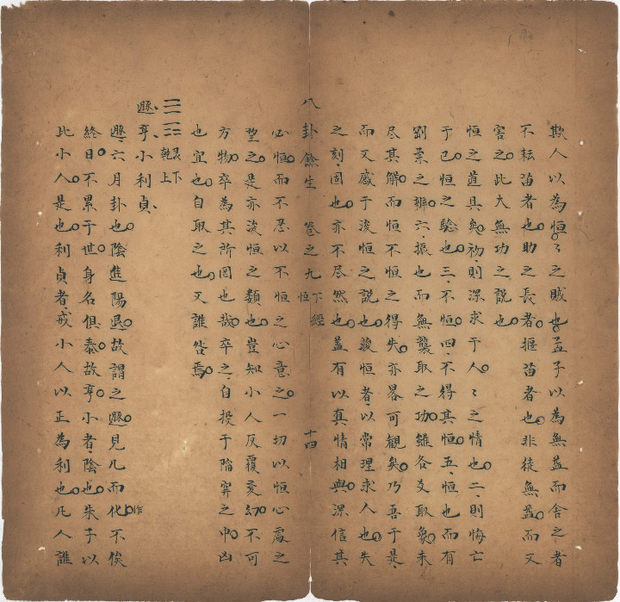 欺人以為恒恒之賊也孟子以為無益而舍之者
不耘苗者也助之長者揠苗者也非徒無益而又
害之此大無功之說也
恒之道具矣初則深求于人人之情也二則悔亡
于已恒之驗也三不恒四不得其恒五恒也而有
劉葉之辨六振也而無襲取之功雖各爻取象未
尽其解而恒不恒之得失亦畧可觀矣乃吾于是
而又感于浚恒之說也浚恒者以常理求人也失
之刻固也亦不尽然也盖有以真情相與深信其
八卦餘生 卷之九 下經 恒 十四
必恒而不忍以不恒之心意之一切以恒心處之
望之是亦浚恒之類也豈知小人反覆変幻不可
方物卒為其所困也哉卒之自投于陷穽之中凶
也宜也自取之也又誰咎焉
艮下乾上
遯亨小利貞
遯六月卦也陰進陽退故謂之遯見几而作不俟
終日不累于世身名俱泰故亨小者陰也朱子以
比小人是也利貞者戒小人以正為利也凡人誰